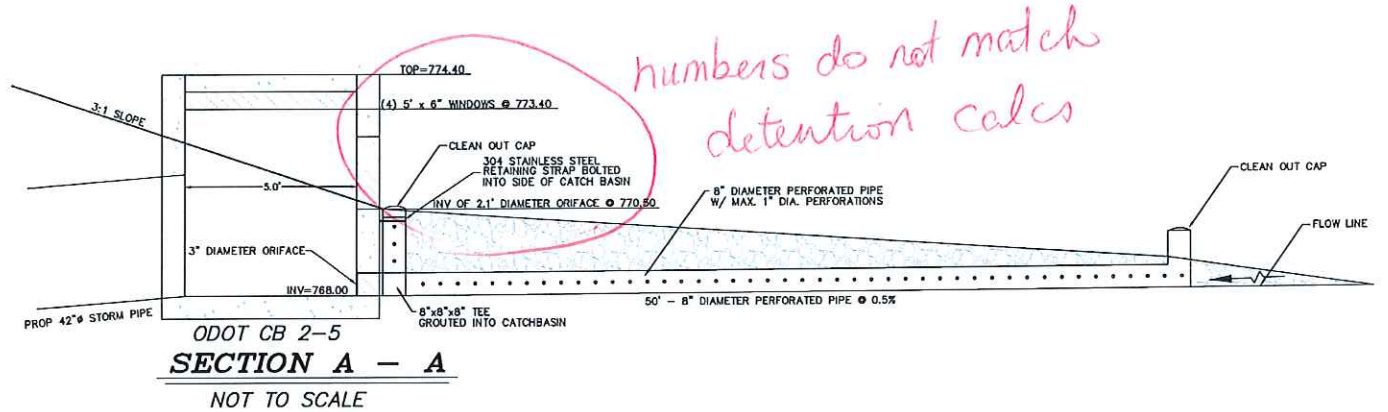 numbers do not match
detention calcs
TOP=774.40
(4) 5' x 6" WINDOWS @ 773.40
3:1 SLOPE
CLEAN OUT CAP
304 STAINLESS STEEL
RETAINING STRAP BOLTED
INTO SIDE OF CATCH BASIN
CLEAN OUT CAP
5.0'
8" DIAMETER PERFORATED PIPE
W/ MAX. 1" DIA. PERFORATIONS
INV OF 2.1' DIAMETER ORIFACE @ 770.50
FLOW LINE
3" DIAMETER ORIFACE
INV=768.00
50' - 8" DIAMETER PERFORATED PIPE @ 0.5%
PROP 42"ø STORM PIPE
8"x8"x8" TEE
GROUTED INTO CATCHBASIN
ODOT CB 2-5
SECTION A - A
NOT TO SCALE